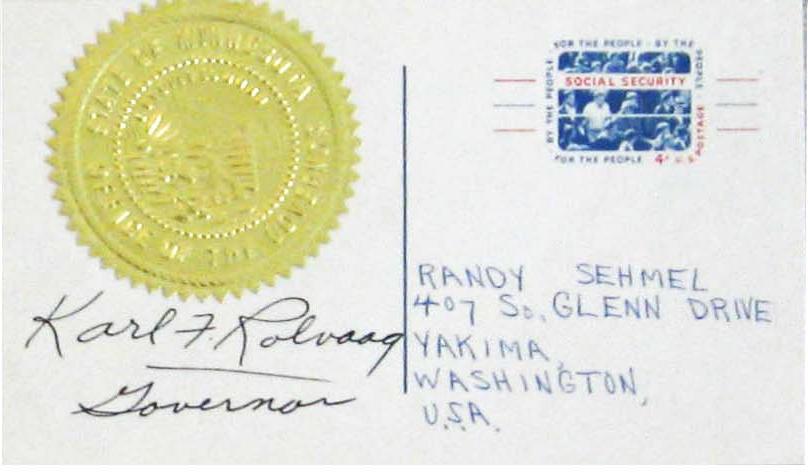 STATE OF MINNESOTA
OFFICE OF THE GOVERNOR
Karl F. Rolvaag
Governor
FOR THE PEOPLE · BY THE PEOPLE
SOCIAL SECURITY
BY THE PEOPLE
FOR THE PEOPLE
4¢ U.S. POSTAGE
RANDY SEHMEL
407 So. GLENN DRIVE
YAKIMA,
WASHINGTON,
U.S.A.